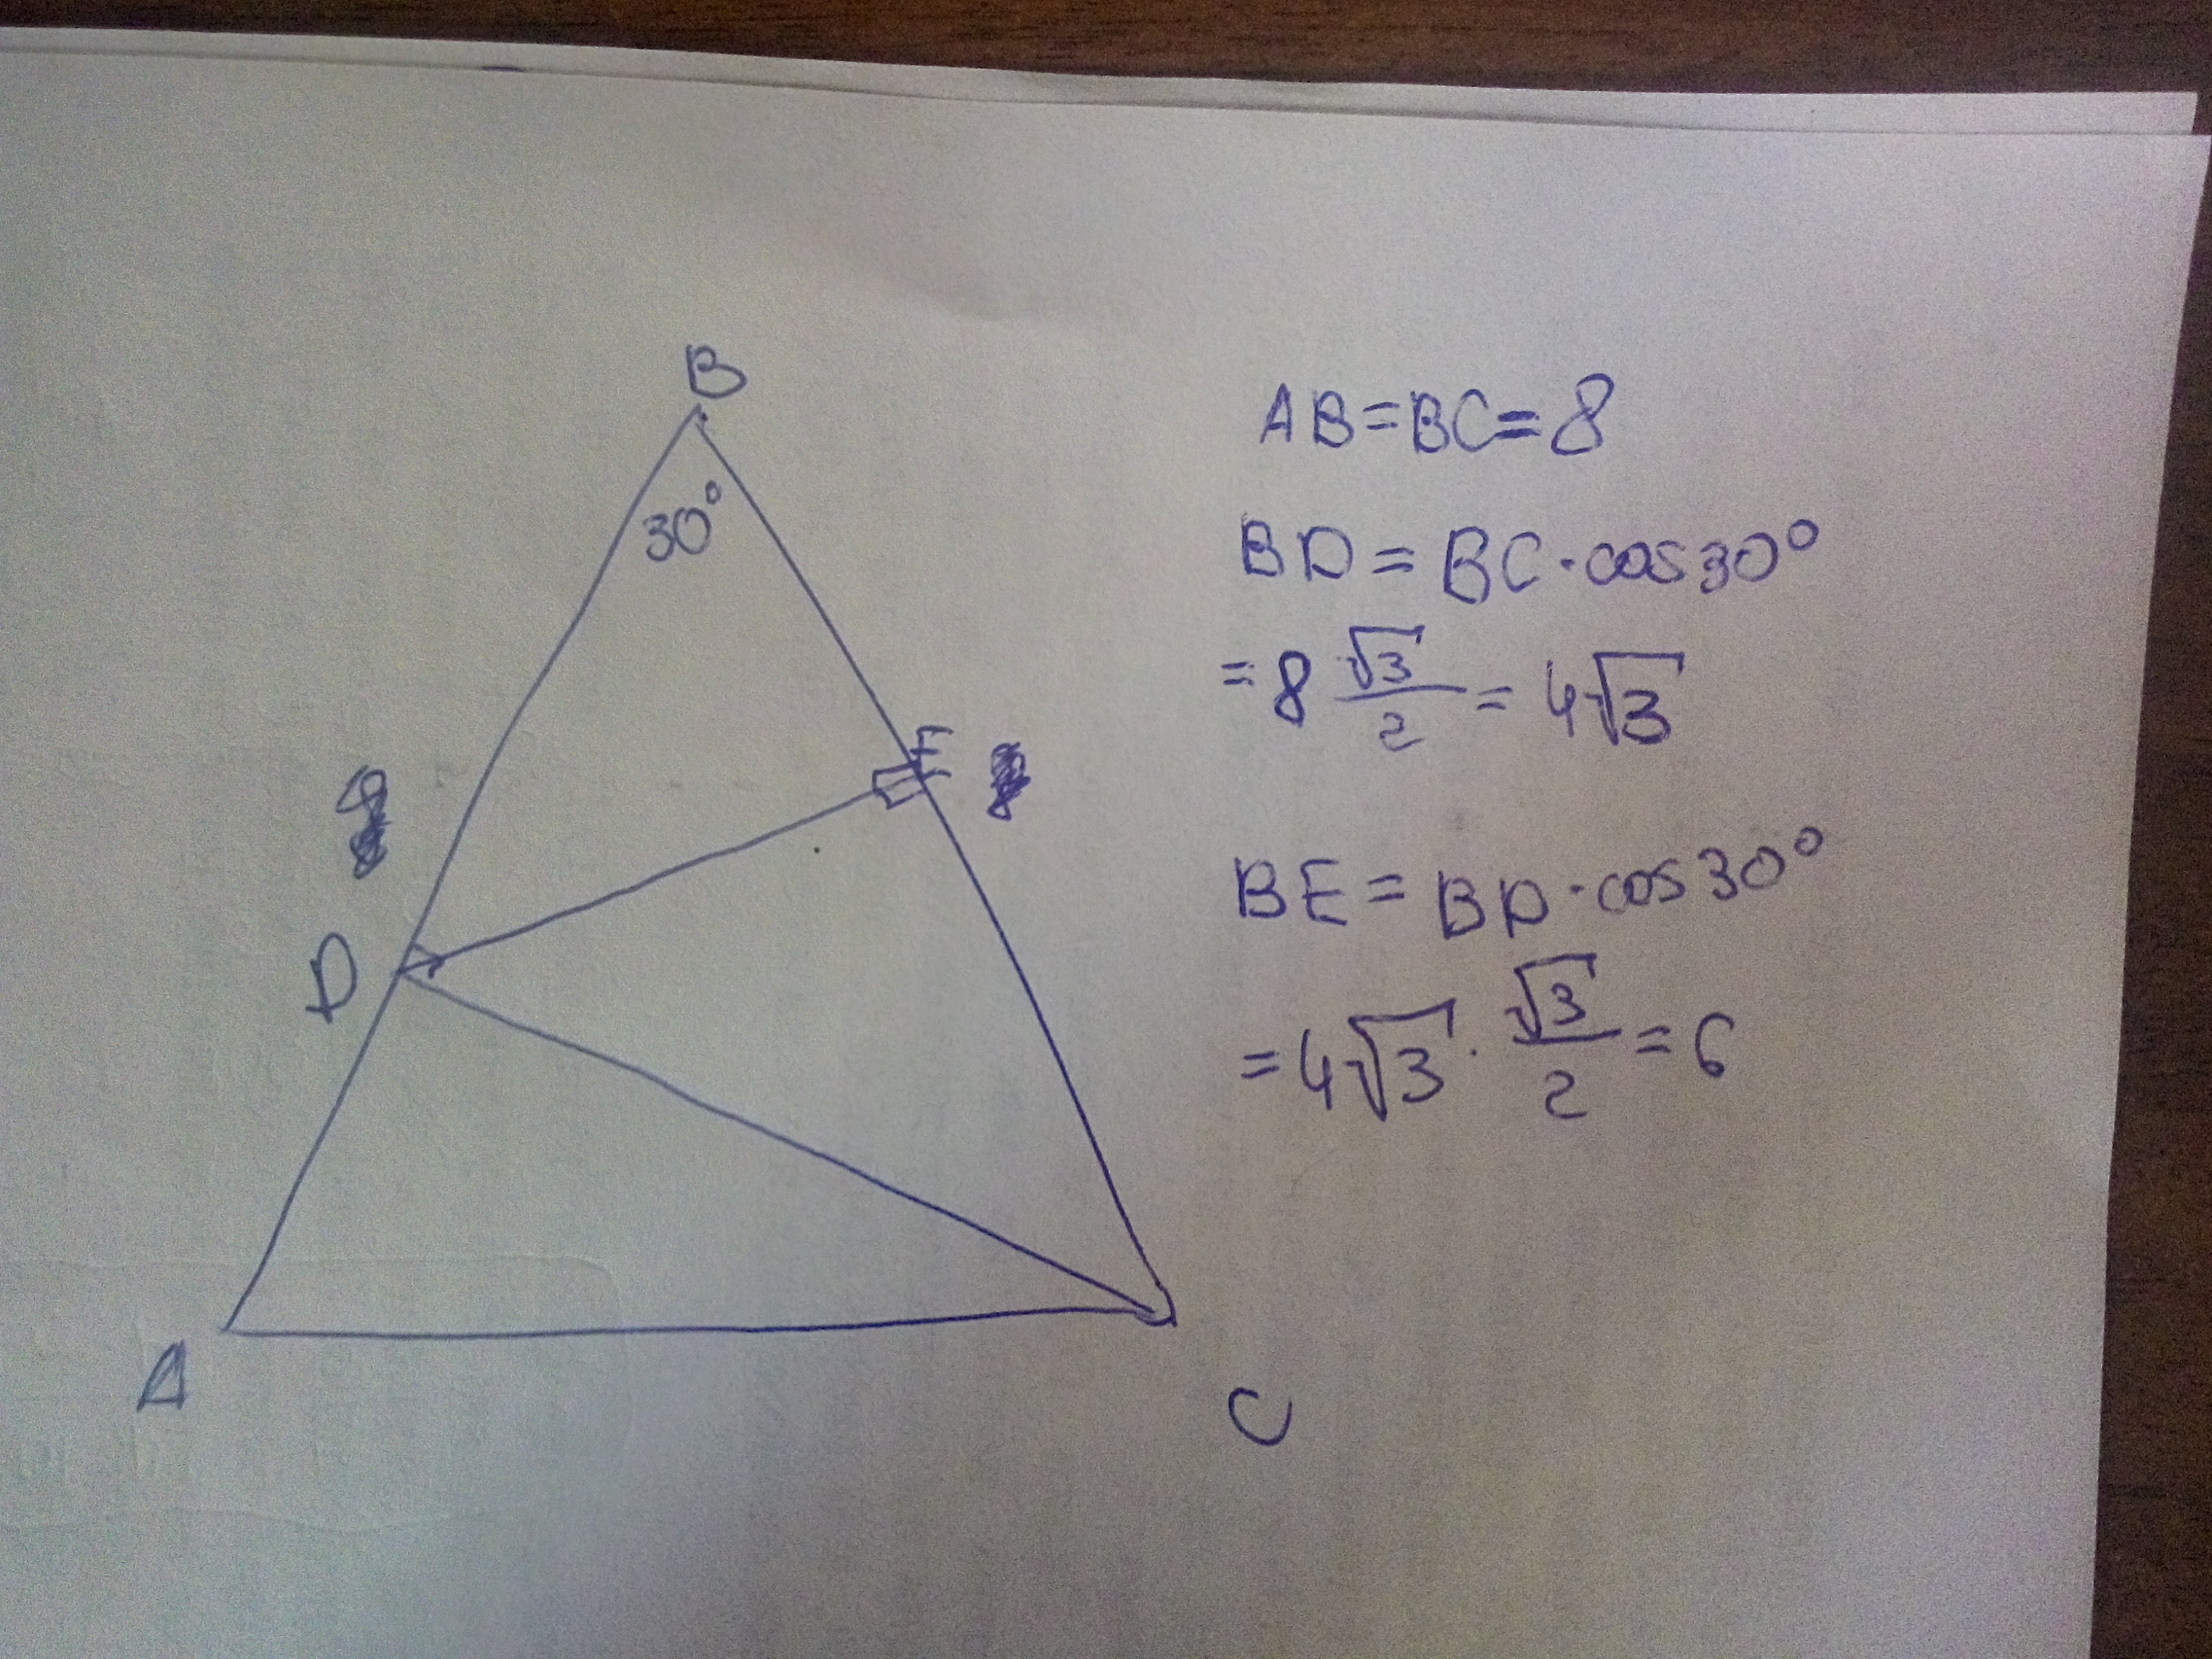 B
30°
E
D
A
C
AB=BC=8
BD=BC·cos30°
=8 √3/2 = 4√3
BE=BD·cos30°
=4√3·√3/2=6